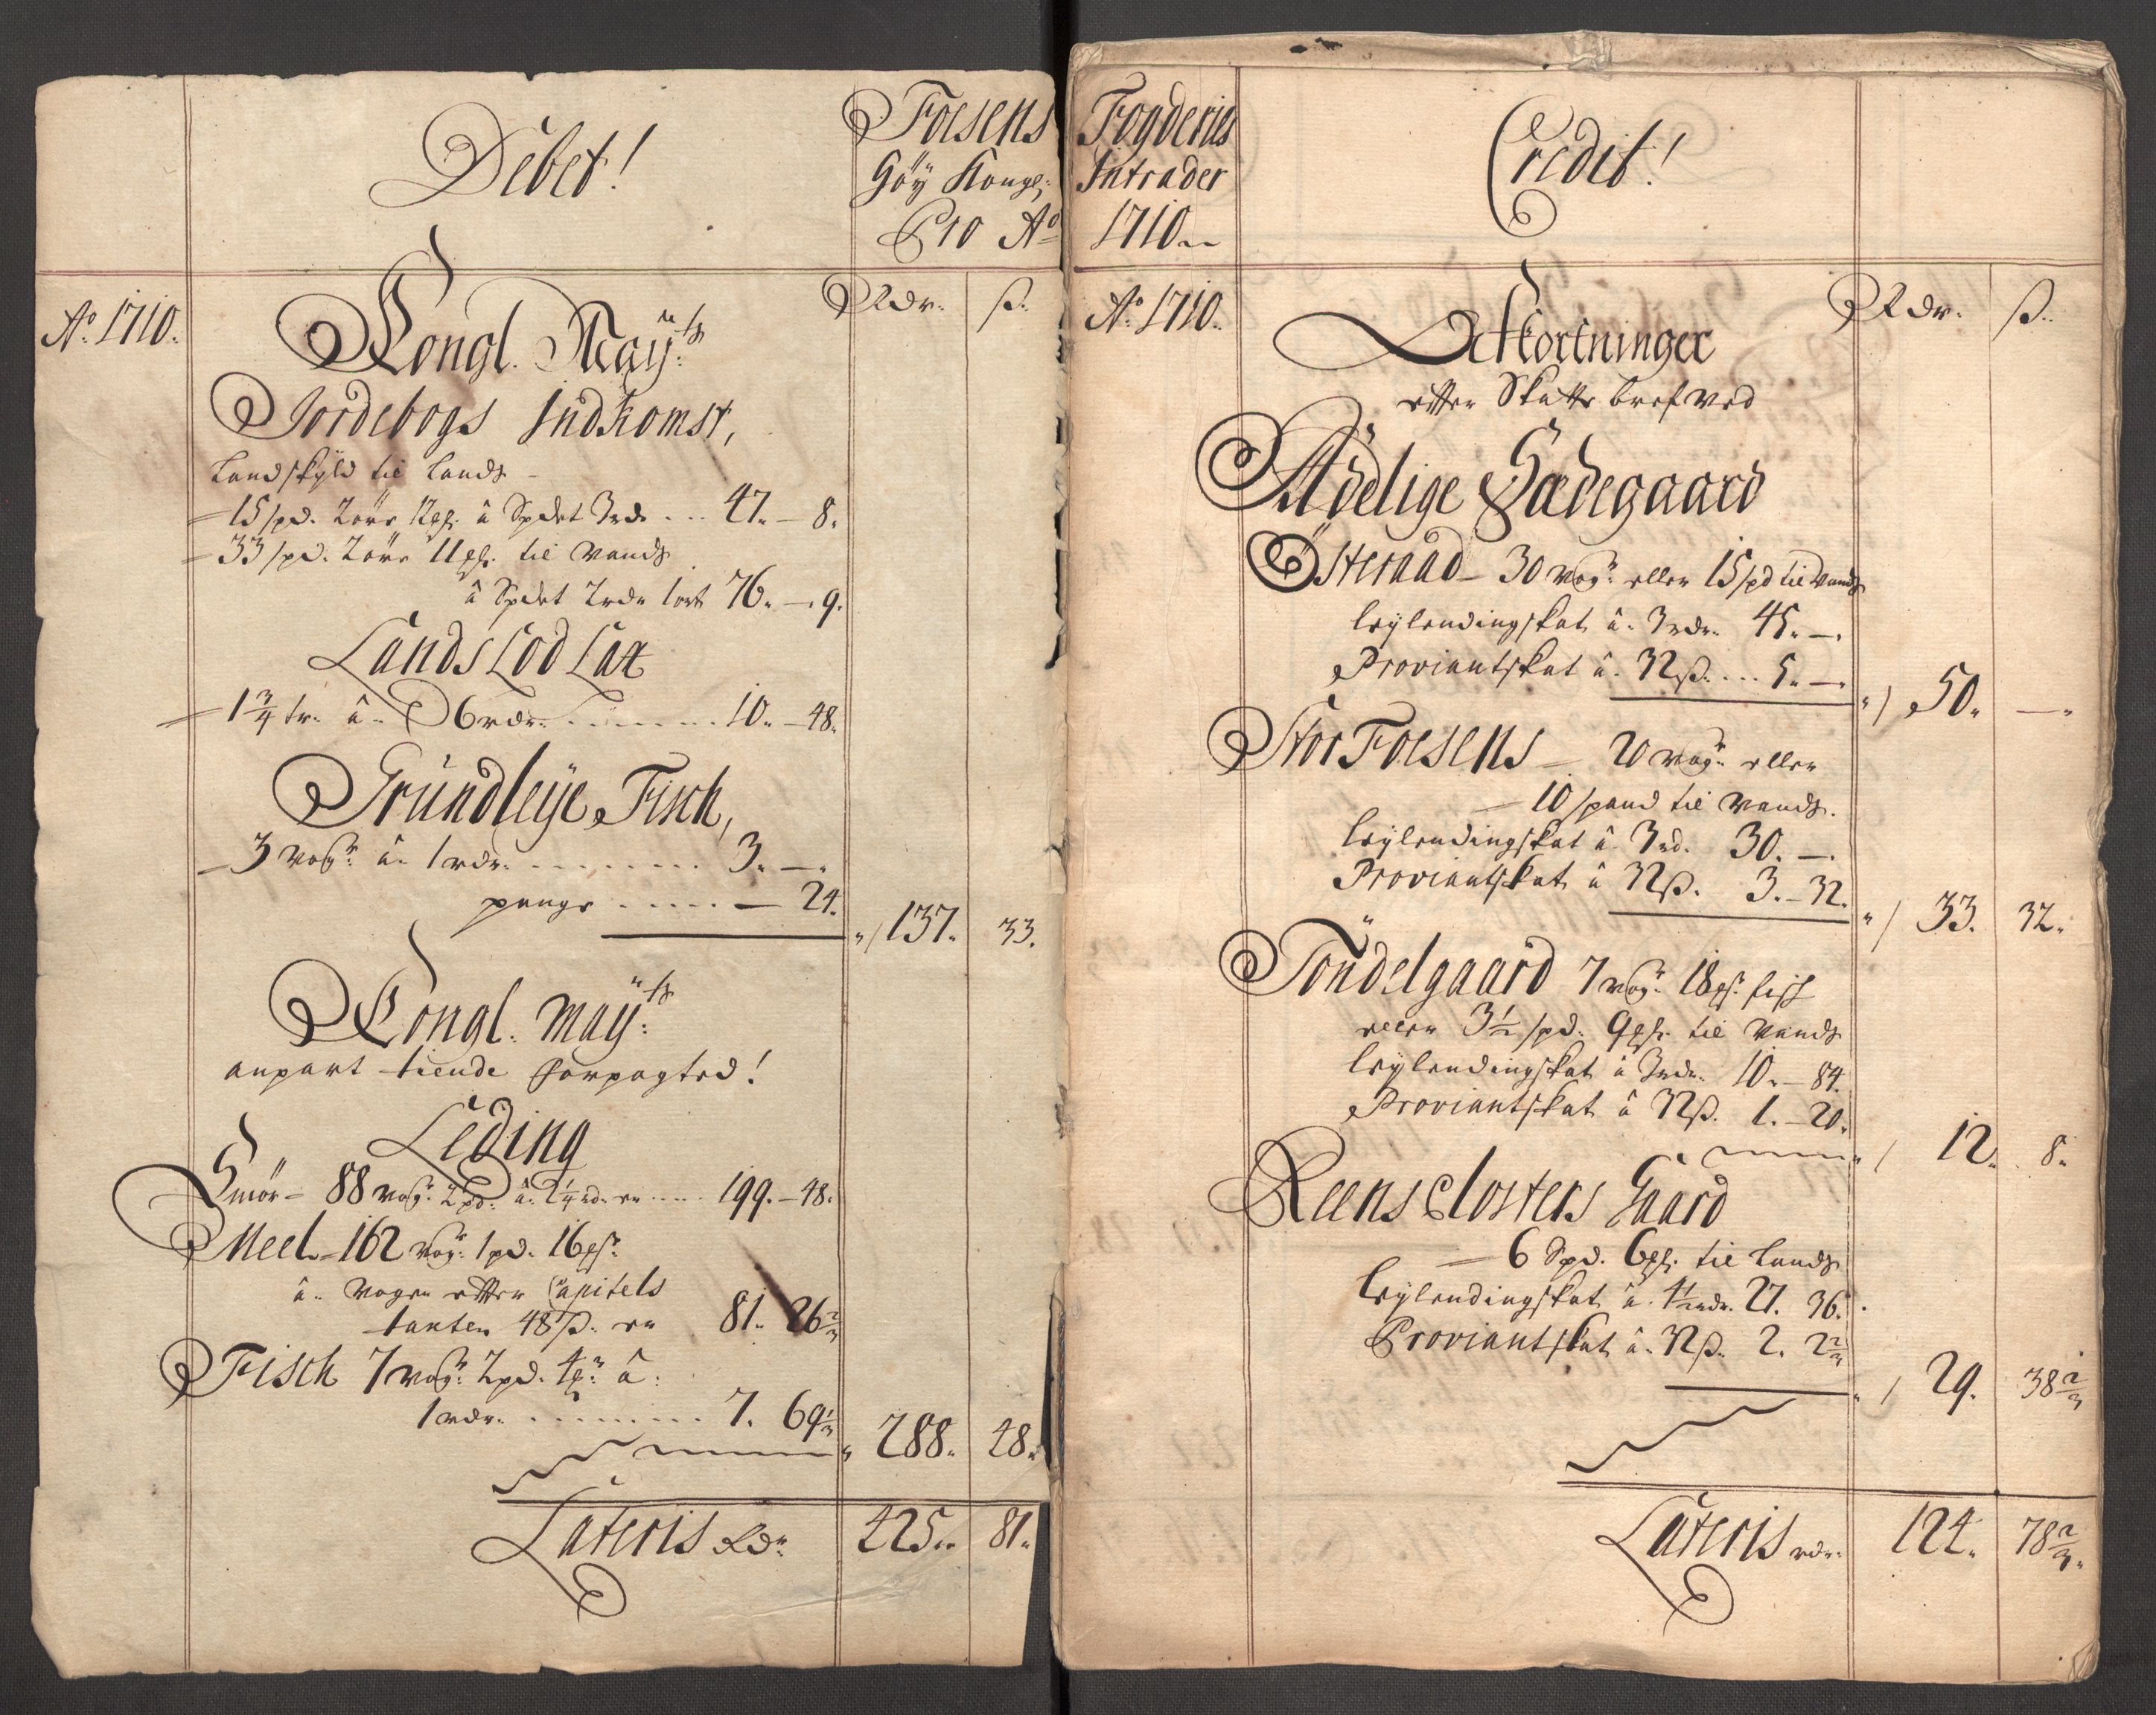 Debet!
Fosens
Göy Kongl:
Pro Ao
Ao 1710.
Rdr. ß.
Kongl. Mayts:
Jordebogs Indkomst,
Landskyld til Lands
15 spd. 2 ör 12 ℔. â Spdet 3 rdr ... 47. – 8.
33 spd. 2 ör 11 ℔. til Vands
â Spdet 2 rdr 1 ort 76. – 9.
Landslod Lax
1 3/4 tr. â 6 rdr. ........ 10. – 48.
Gründleÿe Fisch,
3 vog: â. 1 rdr. ........ 3. –
penge ..... – 24.
137. 33.
Kongl. Mayts:
anpart tiende forpagted!
Leding
Smör – 88 vog: 2 pd. â. 2 1/4 rdr er .... 199. – 48.
Meel – 162 vog: 1 pd. 16 ℔
â. Vogen effter Capitels
taxten 48 ß. er 81. 26 2/3
Fisch 7 vog: 2 pd. â:
1 rdr. ........ 7. 69 1/3
288. 48.
Lateris Rdr. 425. 81.
Fogderies
Intrader
1710
Credit!
Ao 1710.
Rdr. ß.
Afkortninger
effter Skatte brefved
Adelige Sædegaard
Österaad – 30 vog: eller 15 spd til Vands
Leÿlendingskat â. 3 rdr. 45. –.
Proviantskat â. 32 ß. ... 5. –.
50. –
Stor Fosens – 20 vog: eller
10 spand til Vands.
Leÿlendingskat â 3 rd. 30. –.
Proviantskat â 32 ß. 3. – 32.
33. 32.
Töndelgaard 7 vog: 18 ℔ fisk
eller 3 1/2 spd. 9 ℔. til Vands
Leÿlendingskat â 3 rdr. 10. – 84.
Proviantskat â 32 ß. 1. – 20.
12. 8.
Reens Closters Gaard
6 Spd. 6 ℔. til Lands
Leÿlendingskat â. 4 1/2 rdr. 27. 36.
Proviantskat â. 32 ß. 2. 2 2/3
29. 38 2/3
Lateris rdr. 124. 78 2/3.